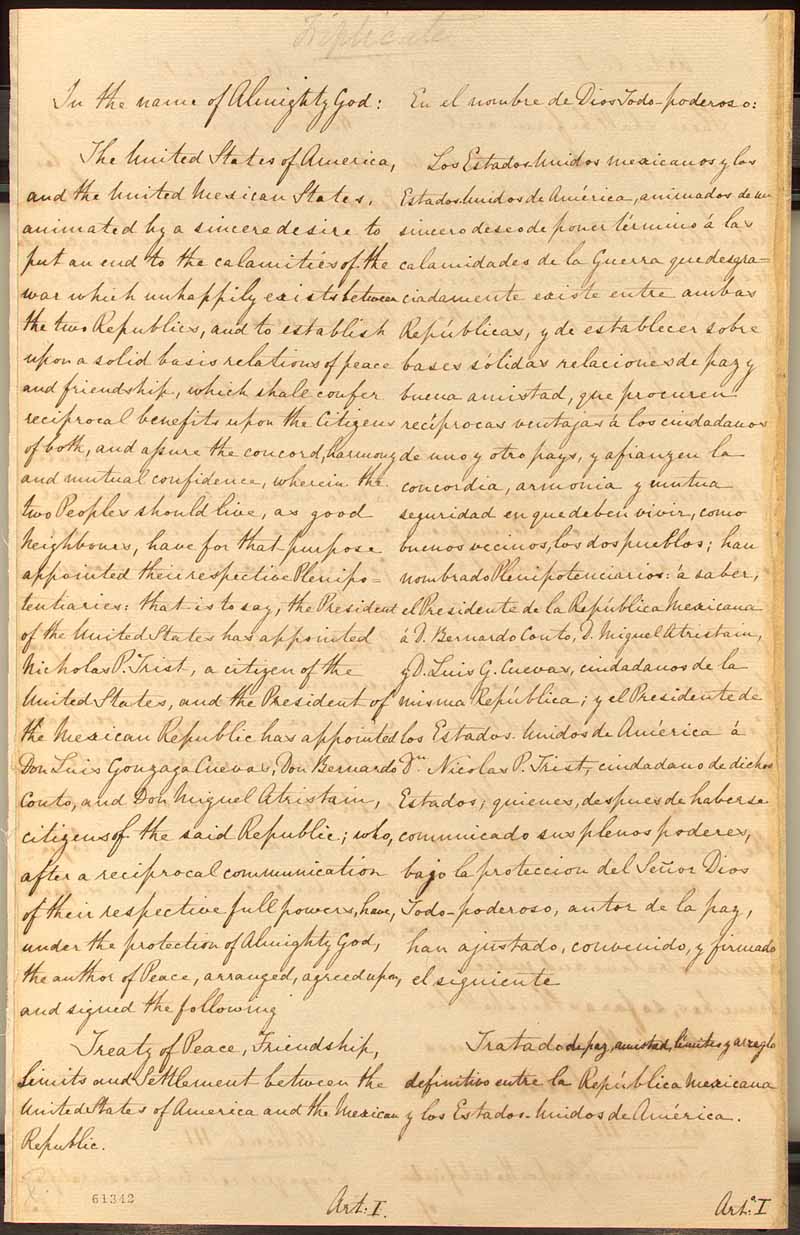 Triplicate
In the name of Almighty God:
The United States of America,
and the United Mexican States,
animated by a sincere desire to
put an end to the calamities of the
war which unhappily exists between
the two Republics, and to establish
upon a solid basis relations of peace
and friendship, which shall confer
reciprocal benefits upon the Citizens
of both, and assure the concord, harmony
and mutual confidence, wherein the
two Peoples should live, as good
Neighbours, have for that purpose
appointed their respective Plenipo=
tentiaries: that is to say, the President
of the United States has appointed
Nicholas P. Trist, a citizen of the
United States, and the President of
the Mexican Republic has appointed
Don Luis Gonzaga Cuevas, Don Bernardo
Couto, and Don Miguel Atristain,
citizens of the said Republic; who,
after a reciprocal communication
of their respective full powers, have,
under the protection of Almighty God,
the author of Peace, arranged, agreed upon,
and signed the following
Treaty of Peace, Friendship,
Limits and Settlement between the
United States of America and the Mexican
Republic.
61342
Art: I.
En el nombre de Dios Todo-poderoso:
Los Estados Unidos mexicanos y los
Estados Unidos de América, animados de un
sincero deseo de poner término á las
calamidades de la Guerra que desgra=
ciadamente existe entre ambas
Repúblicas, y de establecer sobre
bases sólidas relaciones de paz y
buena amistad, que procuren
recíprocas ventajas á los ciudadanos
de uno y otro pays, y afianzen la
concordia, armonia y mutua
seguridad en que deben vivir, como
buenos vecinos, los dos pueblos; han
nombrado Plenipotenciarios: á saber,
el Presidente de la República Mexicana
á D. Bernardo Couto, D. Miguel Atristain,
y D. Luis G. Cuevas, ciudadanos de la
misma República; y el Presidente de
los Estados-Unidos de América á
Dn. Nicolas P. Trist, ciudadano de dichos
Estados; quienes, despues de haberse
comunicado sus plenos poderes,
bajo la proteccion del Señor Dios
Todo-poderoso, autor de la paz,
han ajustado, convenido, y firmado
el siguiente
Tratado de paz, amistad, límites y arreglo
definitivo entre la República Mexicana
y los Estados-Unidos de América.
Arto: I